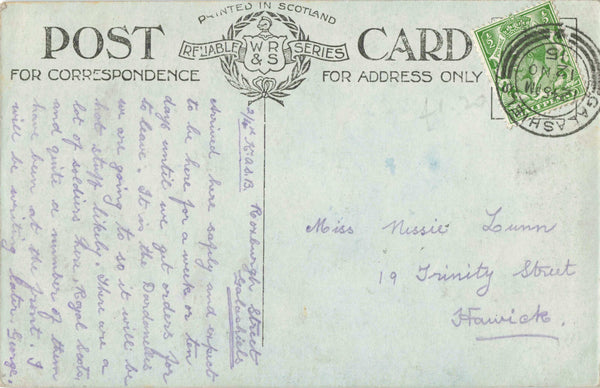 PRINTED IN SCOTLAND
POST CARD
RELIABLE WR&S SERIES
FOR CORRESPONDENCE
FOR ADDRESS ONLY
GALASHIELS
Roxburgh Street
Galashiels
Arrived here safely and expect
to be here for a week or ten
days until we get orders for
to leave. It is the Dardanelles
we are going to so it will be
hot stuff likely. There are a
lot of soldiers here, Royal Scots,
and quite a number of them
have been at the front. I
will be writing later. George.
Miss Nessie Lunn
19 Trinity Street
Hawick.